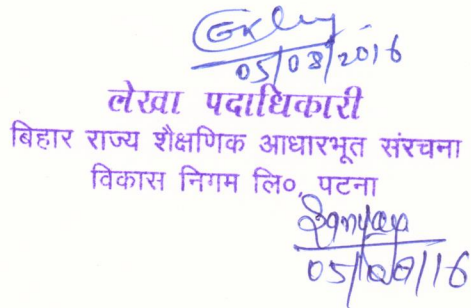 05/08/2016
लेखा पदाधिकारी
बिहार राज्य शैक्षणिक आधारभूत संरचना
विकास निगम लि०, पटना